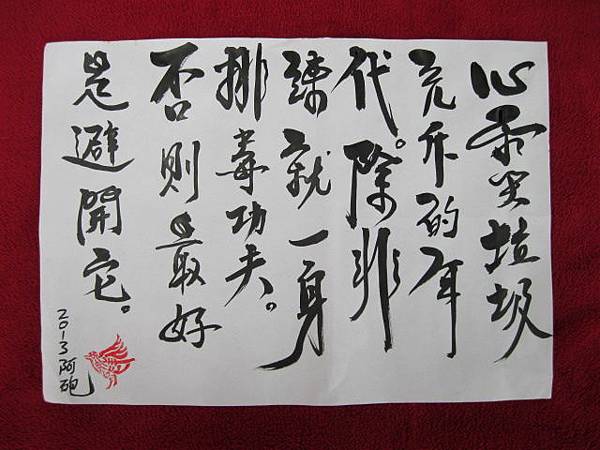 心靈垃圾
充斥的年
代。除非
練就一身
排毒功夫。
否則最好
是避開它。
2013 阿砲